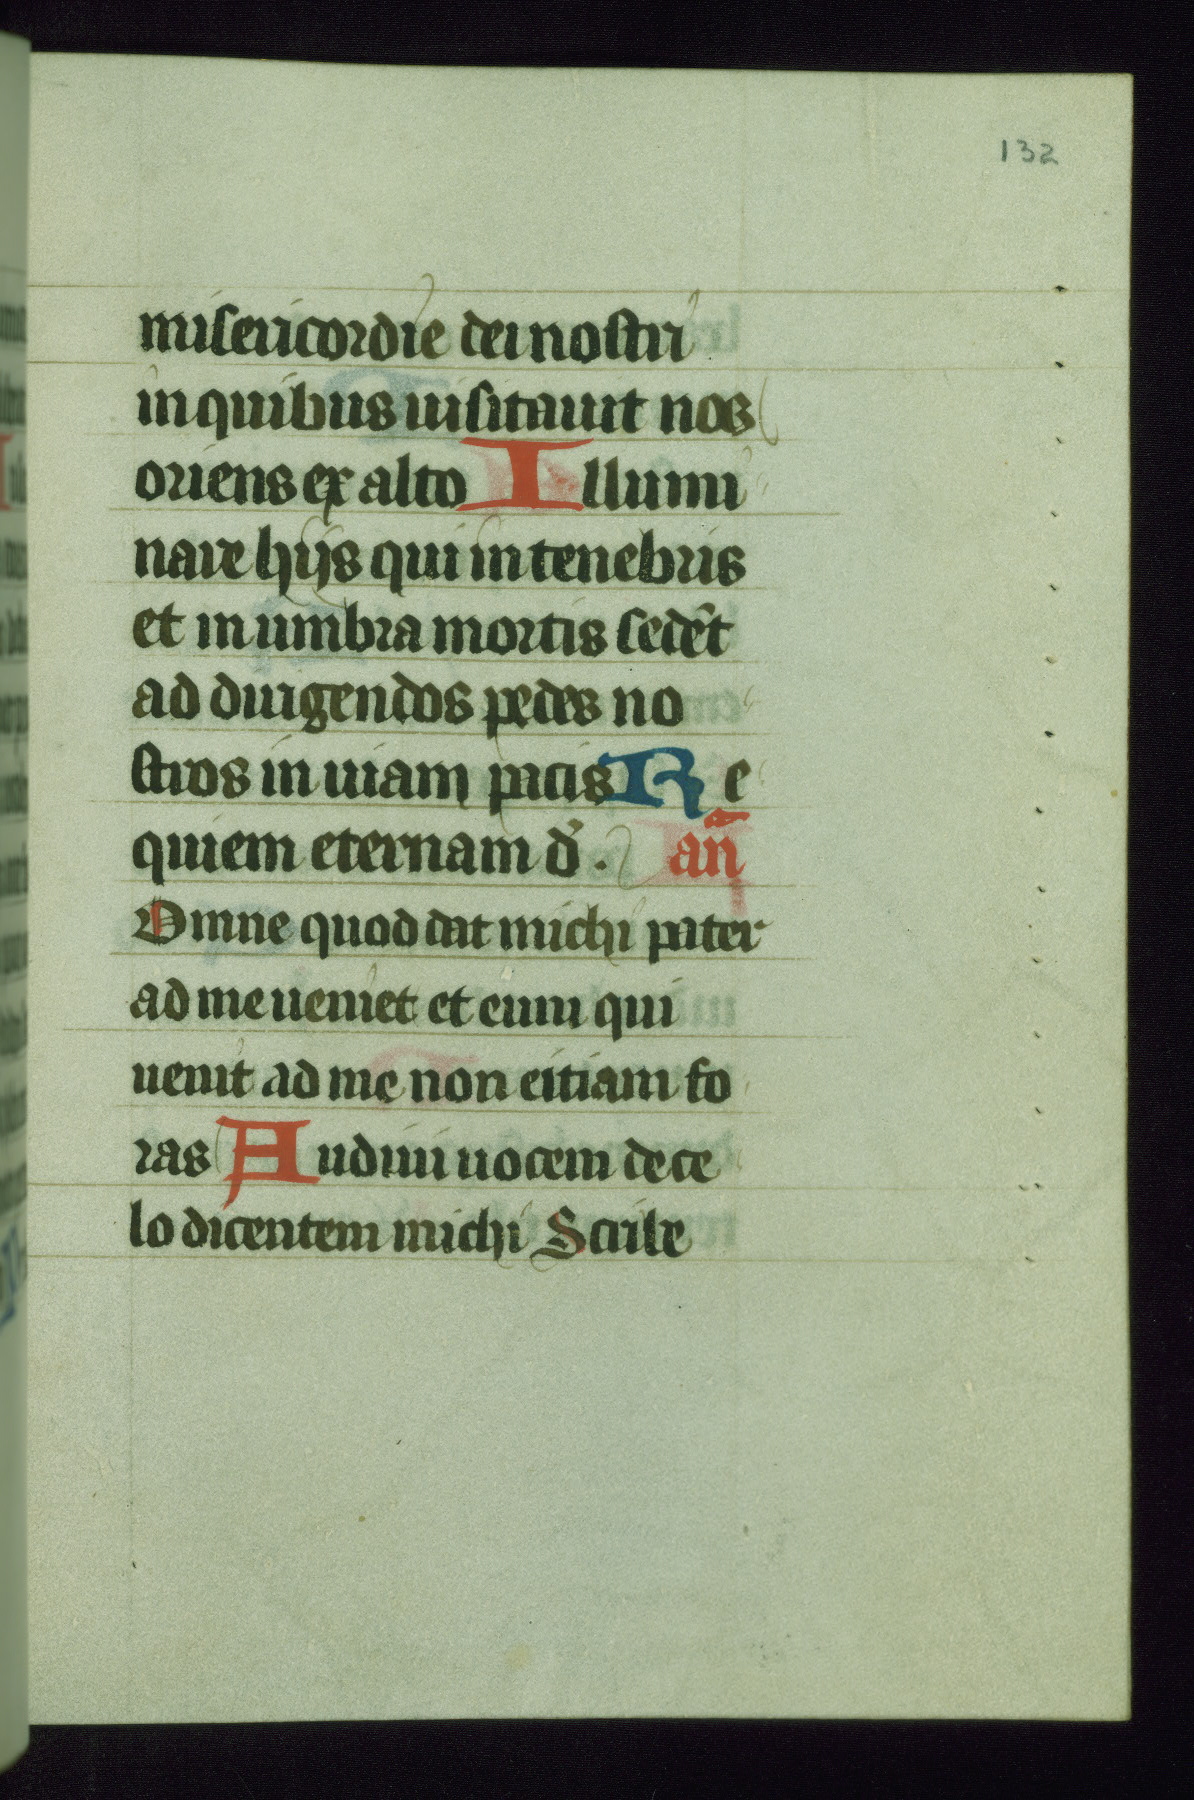 132
misericordie dei nostri
in quibus uisitauit nos
oriens ex alto Illumi
nare hijs qui in tenebris
et in umbra mortis sedēt
ad dirigendos pedes no
stros in uiam pacis Re
quiem eternam d̄. an̄
Omne quod dat michi pater
ad me ueniet et eum qui
uenit ad me non eitiam fo
ras Audiui uocem de ce
lo dicentem michi Scribe